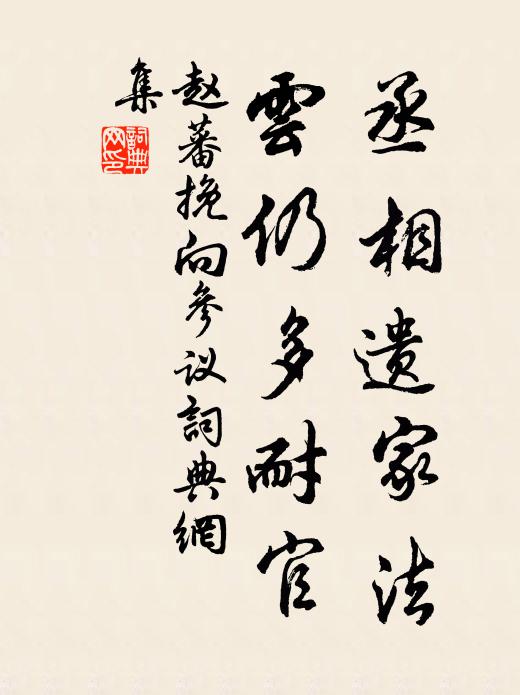 丞相遗家法
雲仍多耐官
赵蕃挽向參议詞典網
集
詞典
网印